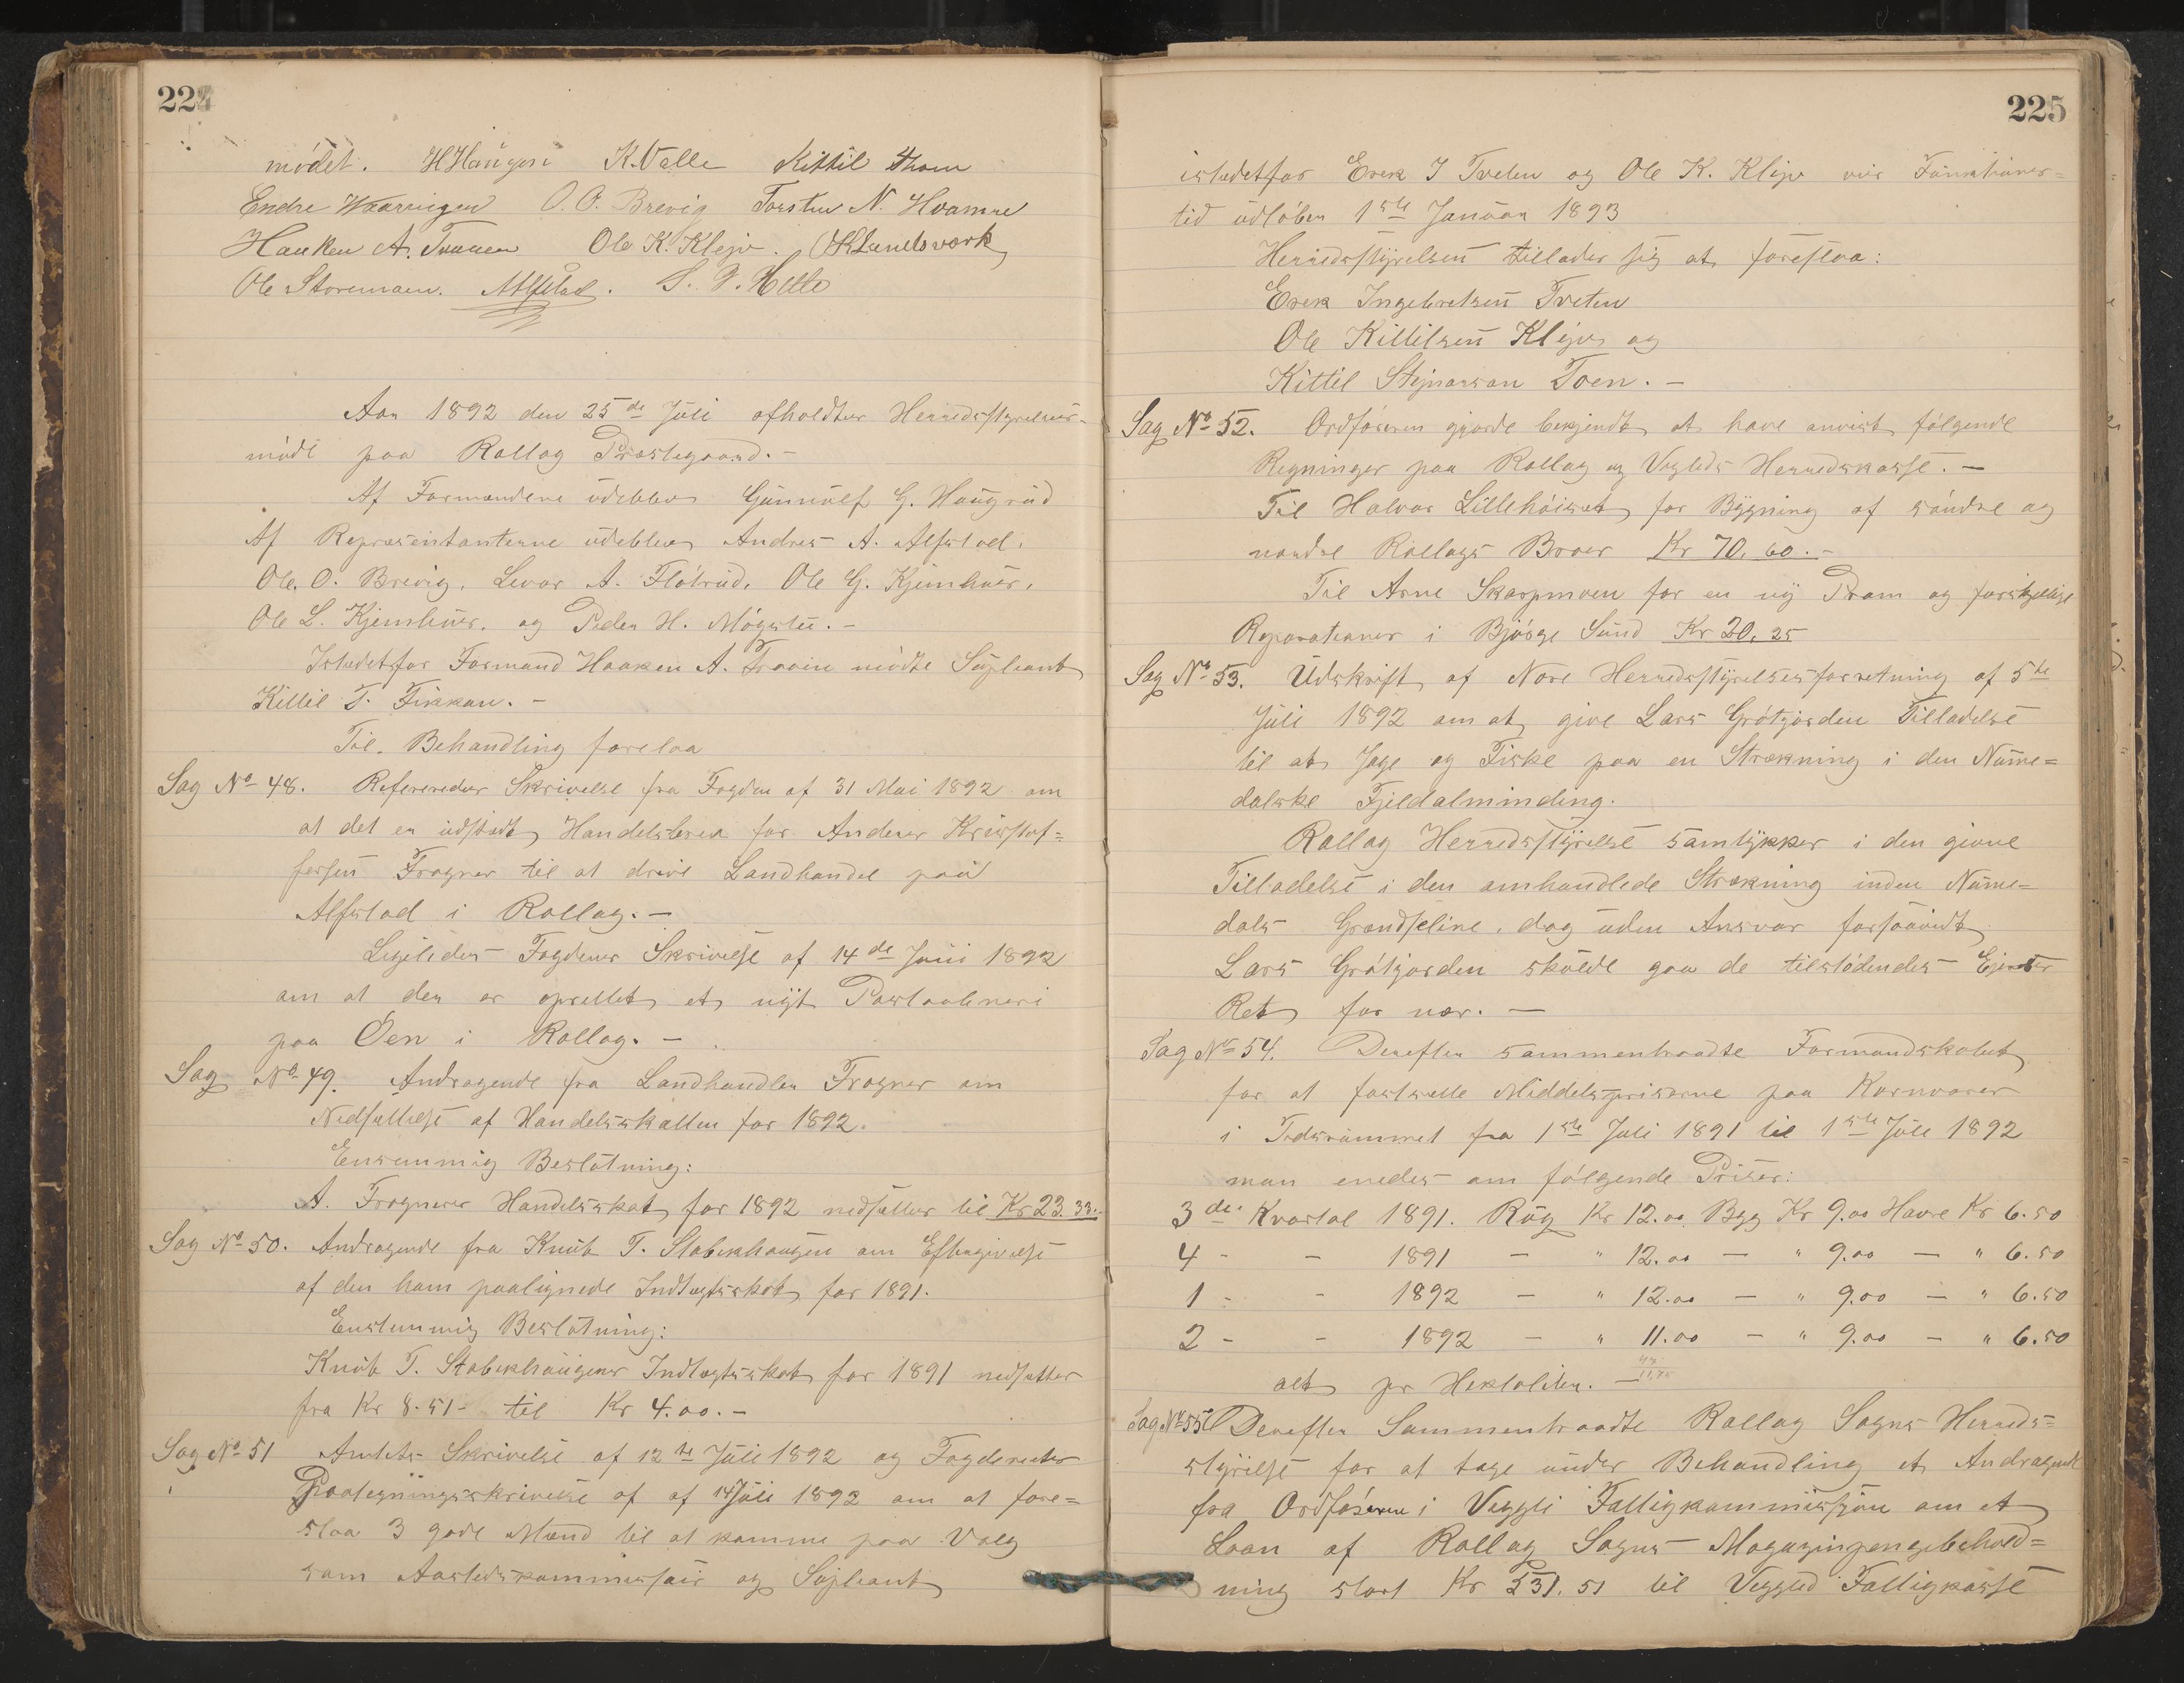 224
mødet. HHaugen K. Valle Kittil
Endre O. O. Brevig Torsten N. Hvamne
Haaken A. Ole K. Klejv. OKLundsvork
Ole Storemoen. AAlfstad. S. P. Helle
Aar 1892 den 25de Juli afholdtes Herredsstyrelses-
møde paa Rollag Præstegaard. -
Af Formændene udeblev Gunnulf G. Haugrud
Af Repræsentanterne udeblev Andres A. Alfstad.
Ole O. Brevig, Levor A. Fløtrud, Ole G. Kjemhus,
Ole L. Kjemhus, og Peder H. Møgstu. -
Istedetfor Formand Haaken A. Traaen mødte Supleant
Kittil T. Fikkan. -
Til Behandling forelaa
Sag No 48. Refereredes Skrivelse fra Fogden af 31 Mai 1892 om
at det er udstedt Handelsbrev for Anders Kristof=
fersen Frogner til at drive Landhandel paa
Alfstad i Rollag. -
Ligeledes Fogdens Skrivelse af 14de Juni 1892
om at der er oprettet et nyt Postaabneri
paa Øen i Rollag. -
Sag No 49. Andragende fra Landhandler Frogner om
Nedsættelse af Handelsskatten for 1892.
Enstemmig Beslutning:
A. Frogners Handelsskat for 1892 nedsættes til Kr 23.33.-
Sag No 50. Andragende fra Knut T. Stabekhaugen om Eftergivelse
af den ham paalignede Indtægtsskat for 1891.
Enstemmig Beslutning:
Knut T. Stabekhaugens Indtægtsskat for 1891 nedsættes
fra Kr 8.51- til Kr 4.00. -
Sag No 51 Amtets Skrivelse af 12te Juli 1892 og Fogderiets
Paategningsskrivelse af af 14 Juli 1892 om at fore=
slaa 3 gode Mænd til at komme paa Valg
som Aastedskommissær og Supleant
225
istedetfor Erek I Tveten og Ole K. Klejv vis Funktions=
tid udløber 1ste Januar 1893
Herredsstyrelsen tillader sig at foreslaa:
Erek Ingebretsen Tveten
Ole Kittilsen Klejv og
Kittil Stejnarsan Toen. -
Sag No 52. Ordføreren gjorde bekjendt at have anvist følgende
Regninger paa Rollag og Vegleds Herredskasse. -
Til Halvor Lillehøiset for Bygning af søndre og
nordre Rollags Broer Kr 70.60. -
Til Arne Skarpmoen for en ny Pram og forskjellige
Reparationer i Bjørge Sund Kr 20.25
Sag No 53. Udskrift af Nore Herredsstyrelsesforretning af 5te
Juli 1892 om at give Lars Grøtjorden Tilladelse
til at Jage og Fiske paa en Strækning i den Nume=
dalske Fjeldalminding.
Rollag Herredsstyrelse samtykker i den givne
Tilladelse i den omhandlede Strækning inden Nume=
dals Grændseline, dog uden Ansvar forsaavidt
Lars Grøtjorden skulde gaa de tilstødendes Ejeres
Ret for nær. -
Sag No 54. Derefter sammentraadte Formandskabet
for at fastsætte Middelspriserne paa Kornvarer
i Tidsrummet fra 1ste Juli 1891 til 1ste Juli 1892
man enedes om følgende Priser:
3de Kvartal 1891. Rug Kr 12.00 Byg Kr 9.00 Havre Kr 6.50
4 - - 1891 - " 12.00 - " 9.00 - " 6.50
1 - - 1892 - " 12.00 - " 9.00 - " 6.50
2 - - 1892 - " 11.00 - " 9.00 - " 6.50
alt pr Hektoliter. -
Sag No 55 Derefter Sammentraadte Rollag Sogns Herreds=
styrelse for at tage under Behandling et Andragende
fra Ordføreren i Veggli Fattigkommissjon om et
Laan af Rollag Sogns Magazinpengebehold=
ning stort Kr 531.51 til Vegled Fattigkasse